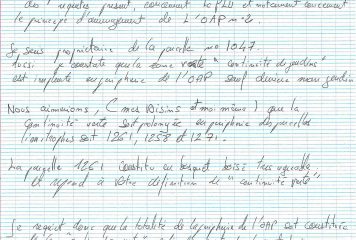 des requêtes présent, concernant le PLU et notamment concernant
le principe d'aménagement de L'OAP n°2.
Je suis propriétaire de la parcelle no 1047.
Aussi je constate que la zone verte "continuité de jardins"
est implantée en périphérie de l'OAP sauf derrière mon jardin
Nous aimerions, (mes voisins et moi même) que la
continuité verte soit prolongée en périphérie des parcelles
limitrophes soit 1261, 1258 et 1271.
La parcelle 1261 constitu un bosquet boisé très agréable
et répond à votre définition de "continuité verte".
Je requiert donc que la totalité de la périphérie de l'OAP est constituée